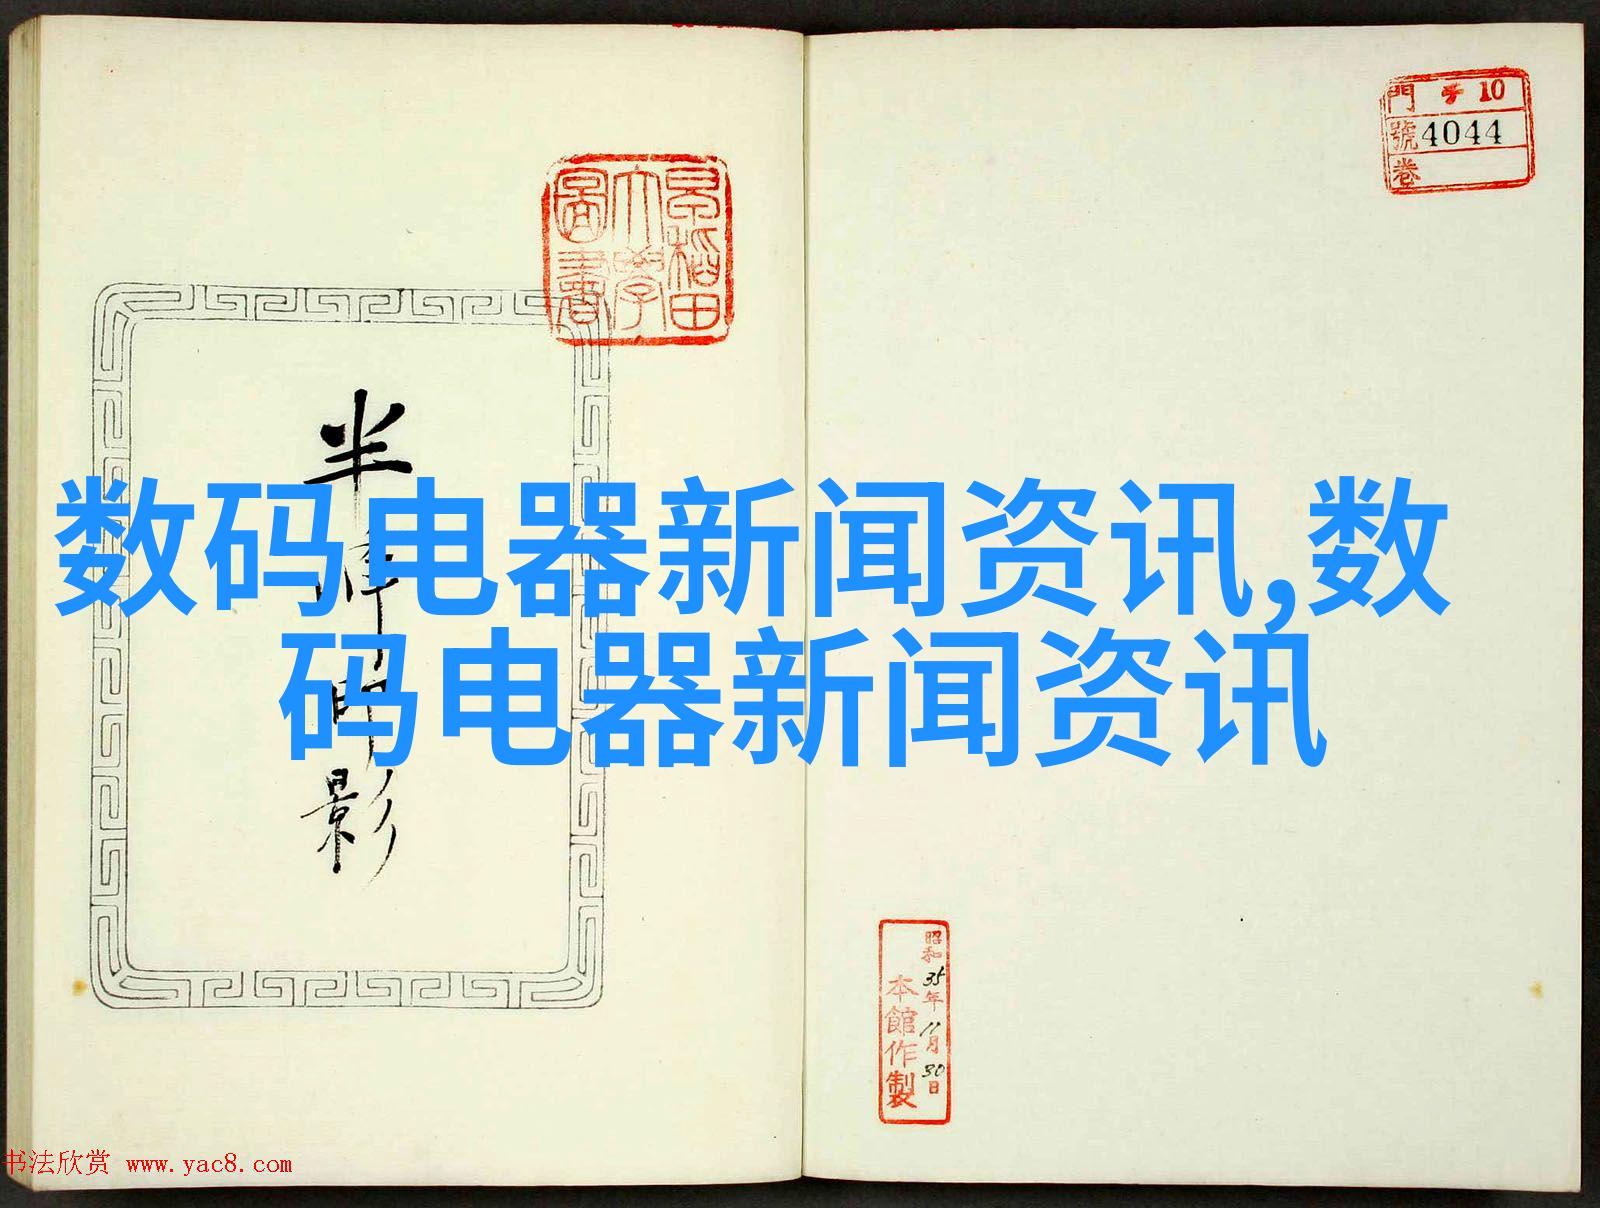 門 チ 10
號 4044
卷
早稲田
大學
圖書
半
印
影
数码电器新闻资讯,数
码电器新闻资讯
昭和35年11月30日
本館作製
书法欣赏 www.yac8.com